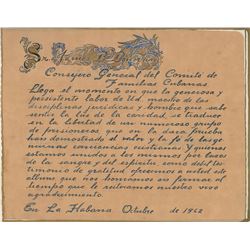 Sr.
Consejero General del Comité de
Familias Cubanas
Llega el momento en que la generosa y
persistente labor de Ud. maestro de las
disciplinas jurídicas y hombre que sabe
sentir la luz de la caridad, se traduce
en la libertad de un numeroso grupo
de prisioneros, que en la dura prueba
han demostrado el valor y la fe de largas
nuestras conciencias cristianas. Y quienes
estamos unidos a los mismos por lazos
de la sangre y del espíritu, como débil tes-
timonio de gratitud ofrecemos a usted este
album que nos honramos en firmar al
tiempo que le reiteramos nuestro vivo
agradecimiento.
En La Habana Octubre de 1962